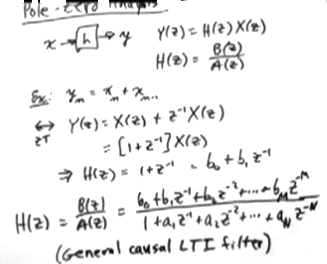 Pole-Zero Analysis
x → h → y Y(z) = H(z) X(z)
H(z) = B(z)/A(z)
Ex: y_n = x_n + x_n-1
↔ ZT Y(z) = X(z) + z^-1 X(z)
= [1 + z^-1] X(z)
⇒ H(z) = 1 + z^-1 = b_0 + b_1 z^-1
H(z) = B(z)/A(z) = (b_0 + b_1 z^-1 + b_2 z^-2 + ... + b_M z^-M)/(1 + a_1 z^-1 + a_2 z^-2 + ... + a_N z^-N)
(General causal LTI filter)